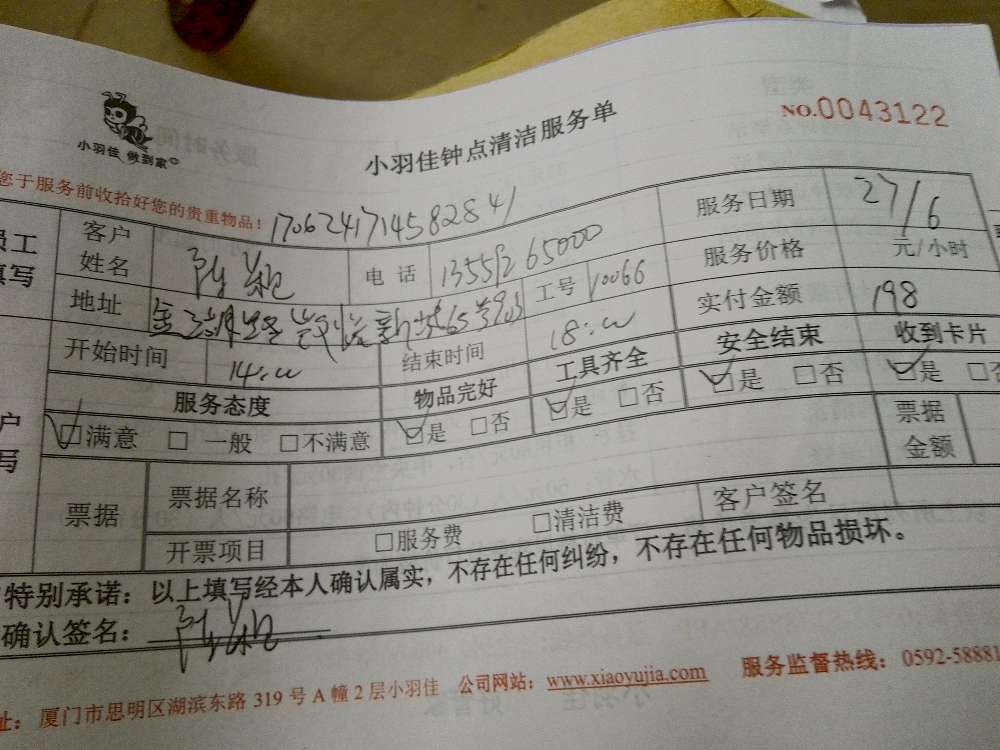 小羽佳 做到家
小羽佳钟点清洁服务单
NO.0043122
您于服务前收拾好您的贵重物品！
1706241714582841
员工
填写
客户
姓名
电话
服务日期 27/6
地址
工号 10066
服务价格 元/小时
开始时间 14:00
结束时间 18:00
实付金额 198
服务态度 物品完好 工具齐全 安全结束 收到卡片
☑满意 □ 一般 □不满意 ☑是 □否 ☑是 □否 ☑是 □否 ☑是 □否
户
写
票据
票据名称
票据
金额
开票项目 □服务费 □清洁费 客户签名
特别承诺：以上填写经本人确认属实，不存在任何纠纷，不存在任何物品损坏。
确认签名：
址：厦门市思明区湖滨东路 319 号 A 幢 2 层小羽佳 公司网站：www.xiaoyujia.com 服务监督热线：0592-58881